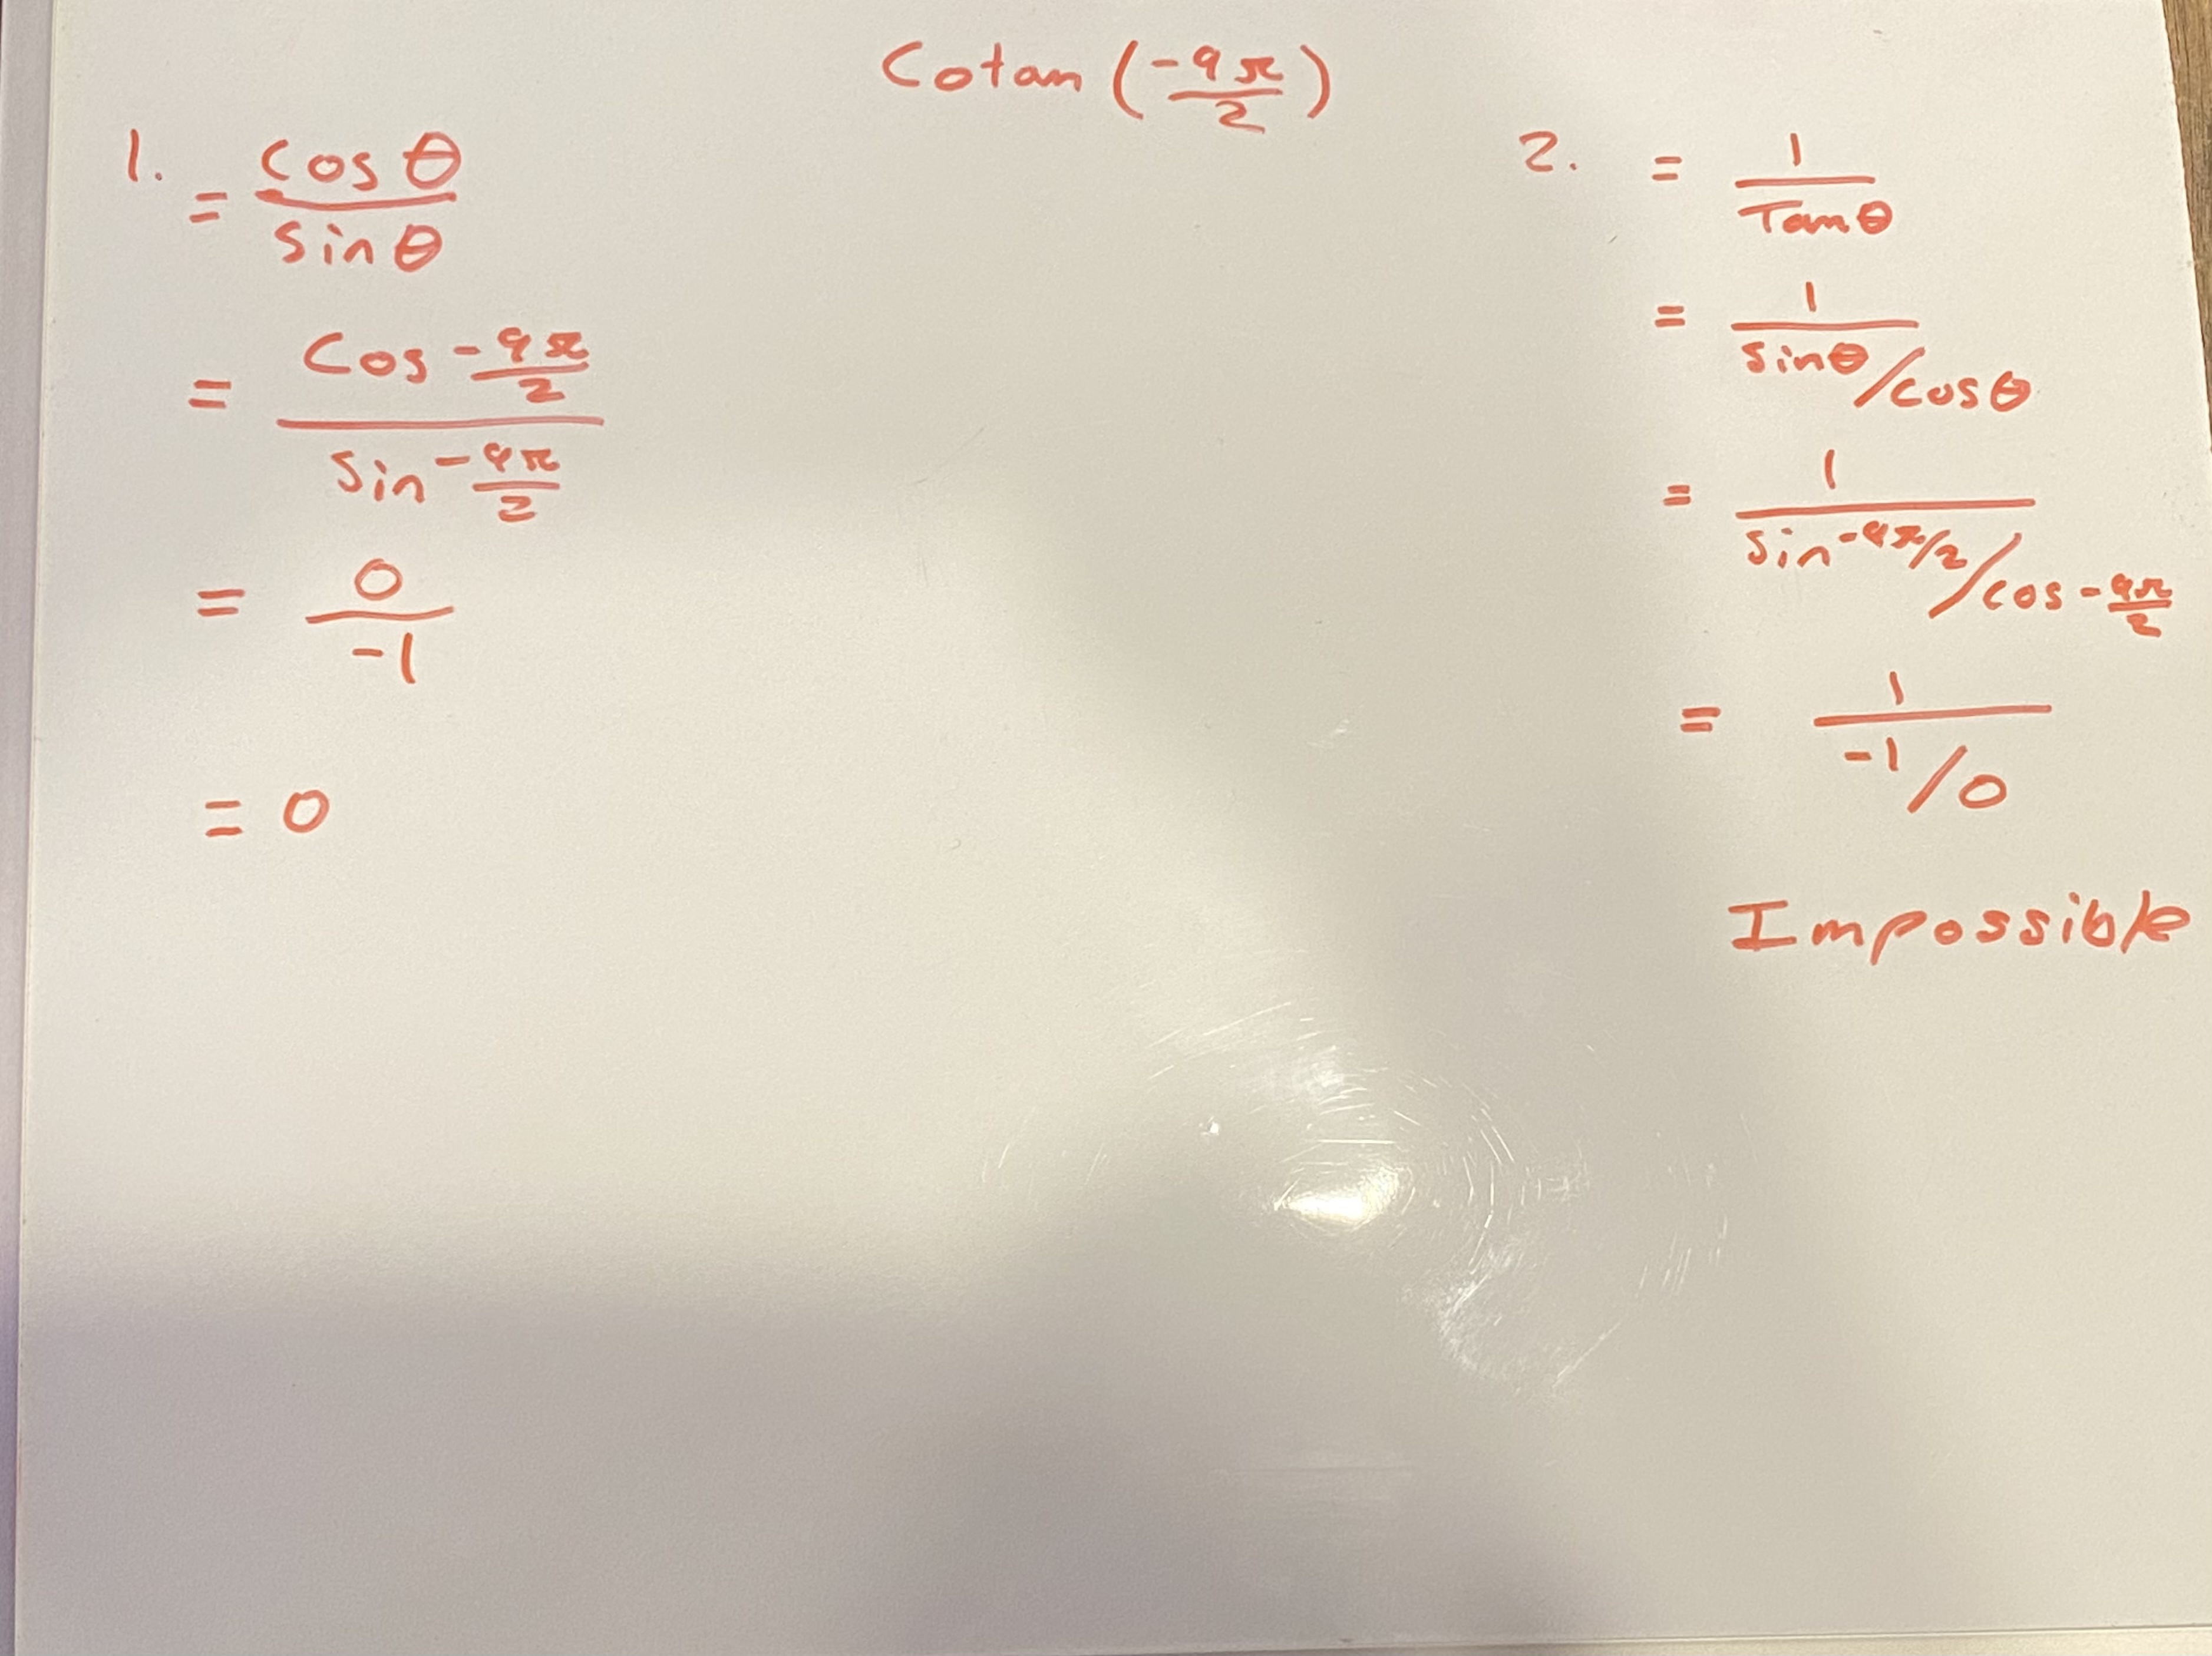 Cotan (-9π/2)
1. = Cos θ / Sin θ
= Cos -9π/2 / Sin -9π/2
= 0 / -1
= 0
2. = 1 / Tan θ
= 1 / sin θ / cos θ
= 1 / Sin -9π/2 / cos -9π/2
= 1 / -1 / 0
Impossible